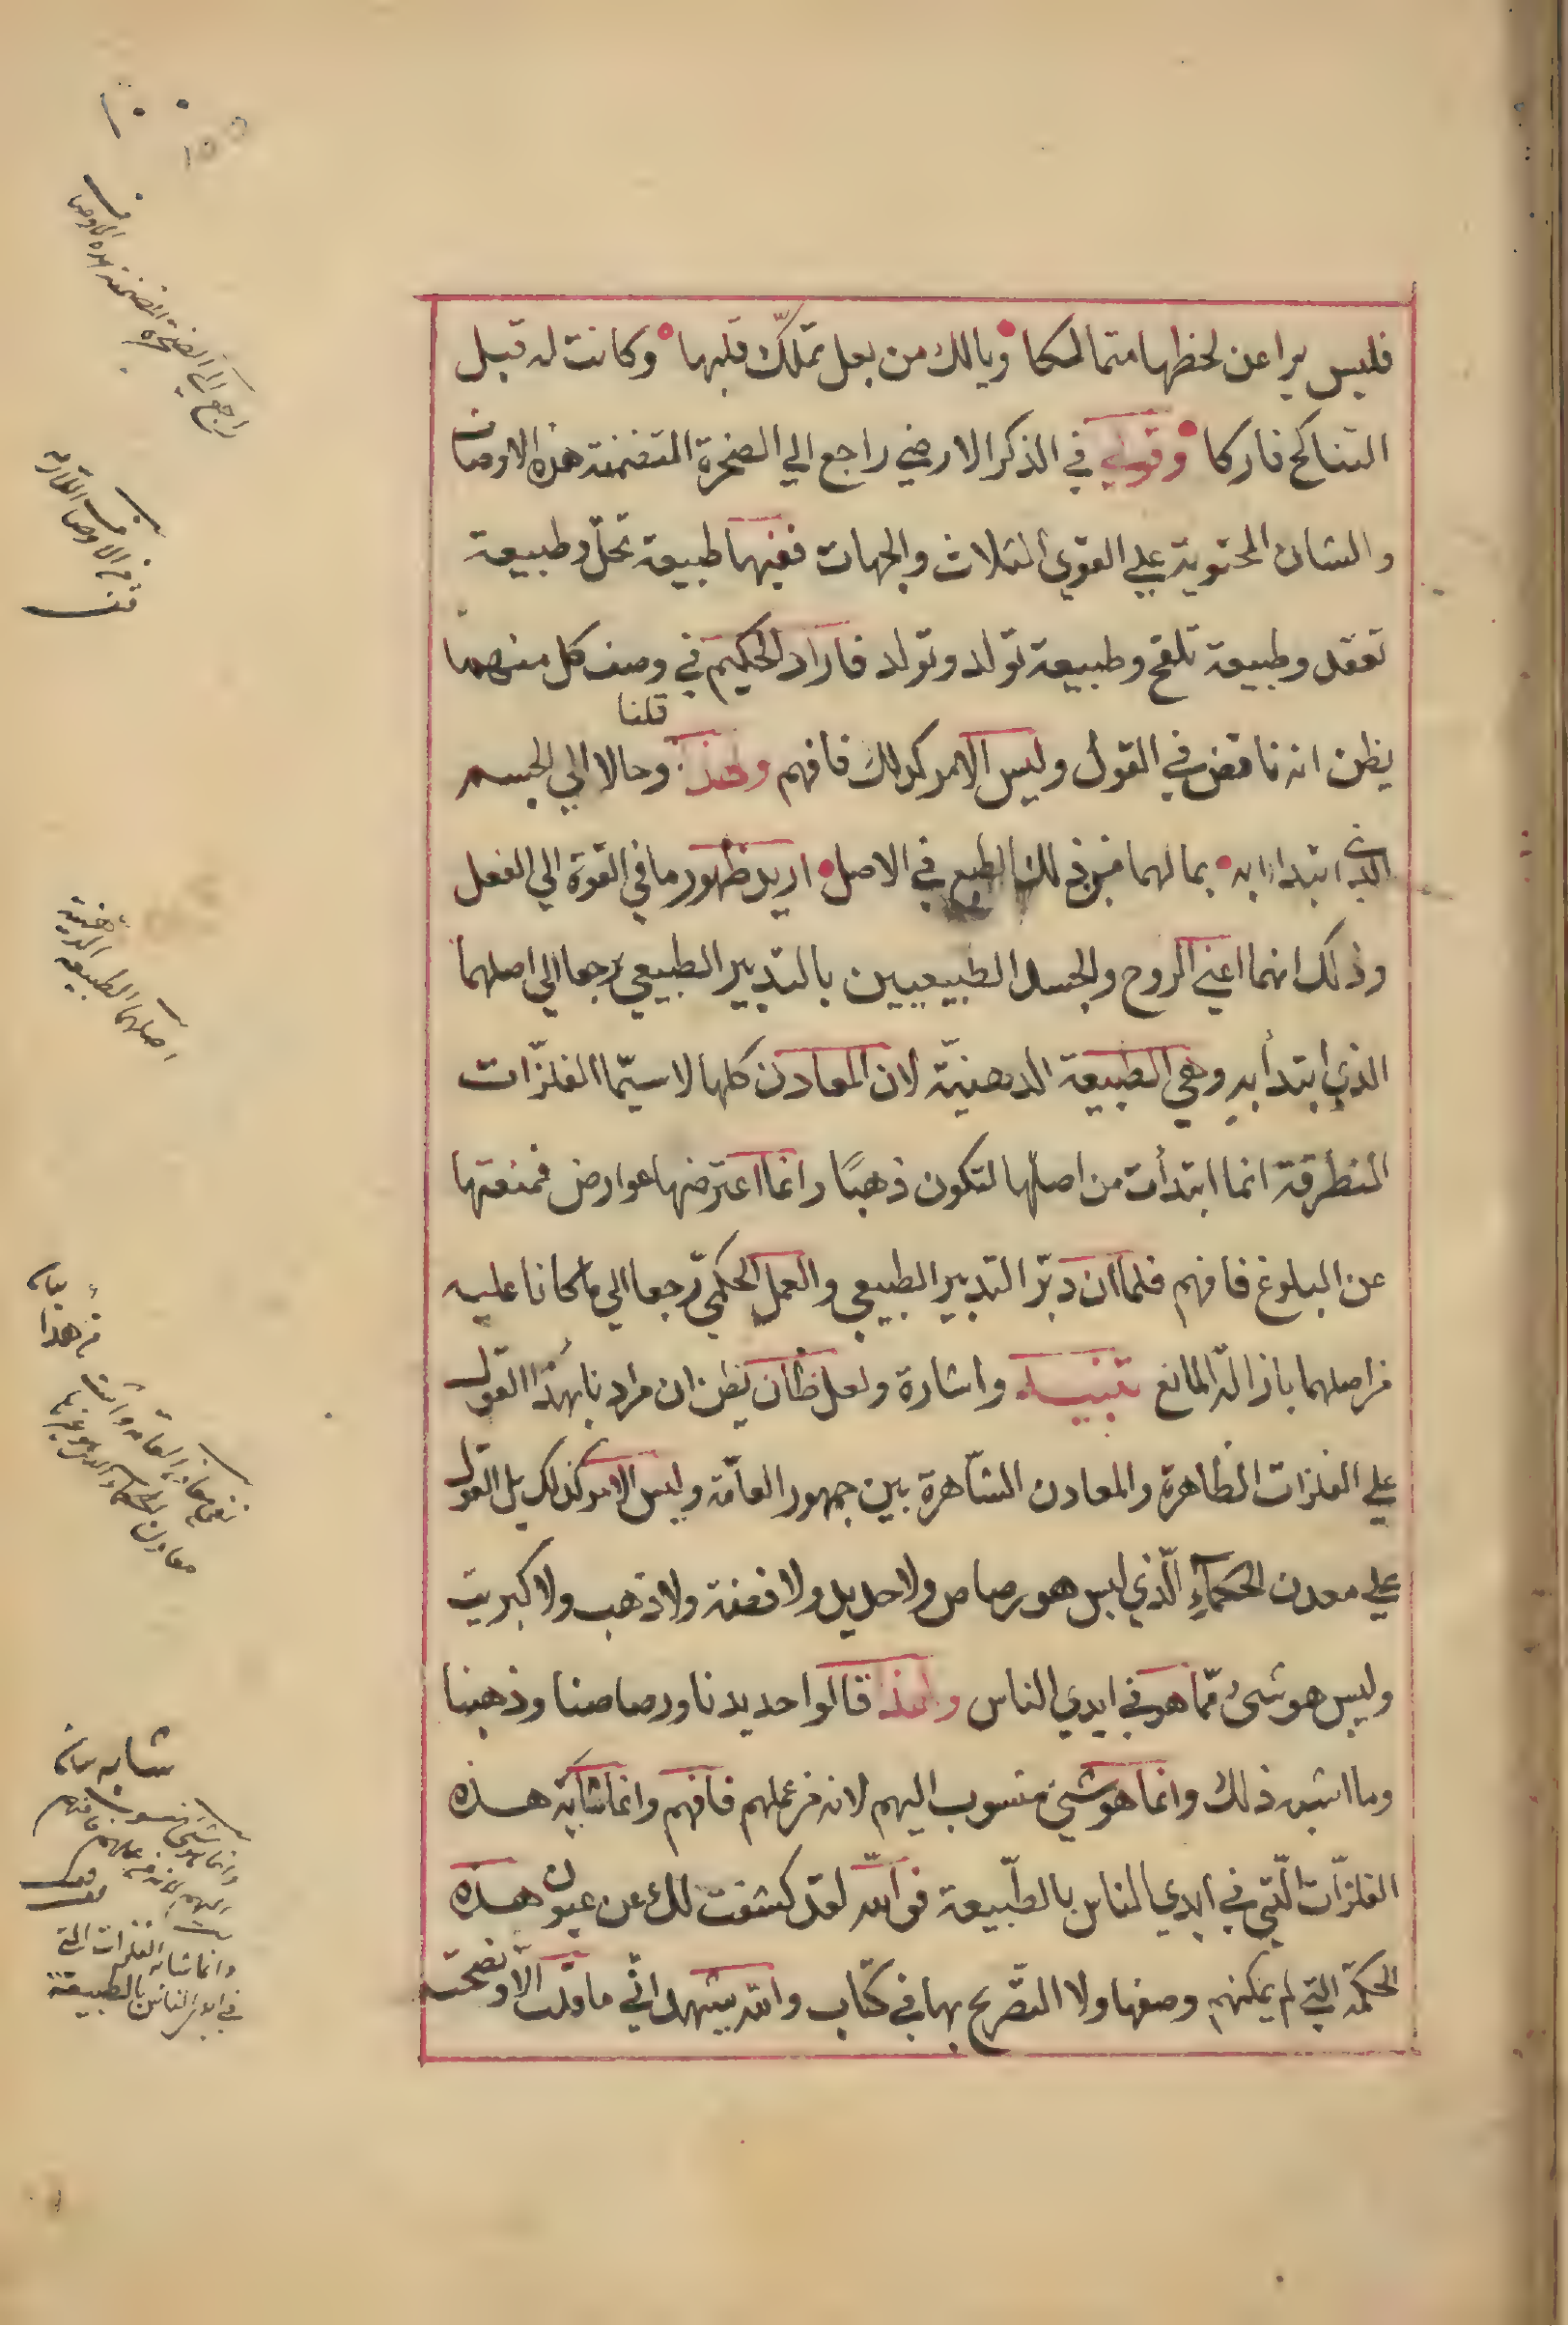 فليس يرا عن لحظها متمالكا ويالك من بعل تملّك قلبها وكانت له قبل
التناكح فاركا وقولي في الذكر الارضي راجع الي الصخرة المتضمنة هذه الاوصاف
والشان المحتوية علي القوي الثلاث والجهات ففيها طبيعة تحلّ وطبيعة
تعقد وطبيعة تلقح وطبيعة تولد وتولد فاراد الحكيم في وصف كل منهما
قلنا
يظن انه ناقض في القول وليس الامر كذلك فافهم ولهذا وحالا الي الجسم
الذي ابتدا به بما لهما من ذلك الطبع في الاصل اريد ظهور ما في القوة الي الفعل
وذلك انهما اعني الروح والجسد الطبيعيين بالتدبير الطبيعي رجعا الي اصلهما
الذي ابتدأ به وهي الطبيعة الدهنيّة لان المعادن كلها لا سيّما الفلزّات
المنطرقة انما ابتدأت من اصلها لتكون ذهبًا وانما اعترضها عوارض فمنعتها
عن البلوغ فافهم فلما ان دبّر التدبير الطبيعي والعمل الحكميّ رجعا الي ما كانا عليه
من اصلهما بازالة المانع تنبيه واشارة ولعل ظان يظن ان مرادنا بهذا القول
علي الفلزات الظاهرة والمعادن الشاهرة بين جمهور العامّة وليس الامر كذلك بل القول
علي معدن الحكمآءِ الّذي ليس هو رصاص ولا حديد ولا فضة ولا ذهب ولا كبريت
وليس هو شيء ممّا هو في ايدي الناس ولهذا قالوا حديدنا ورصاصنا وذهبنا
وما اشبه ذلك وانما هو شيئ منسوب اليهم لانه من عملهم فافهم وانما شابه هذه
الفلزّات الّتي في ايدي الناس بالطّبيعة فو الله لقد كشفت لك عن عيون هذه
الحكمة التي لم يمكنهم وصفها ولا التّصريح بها في كتاب والله يشهد انّي ما قلت الا ونصحت
راجع الي الصخرة المتضمنة هذه الاوصاف
اصلهما الطبيعة الدهنية
من هذا
معادن الحكماء
شابه
وانما هو شيئ منسوب
اليهم لانه من عملهم فافهم
وانما شابه الفلزات التي
في ايدي الناس بالطبيعة